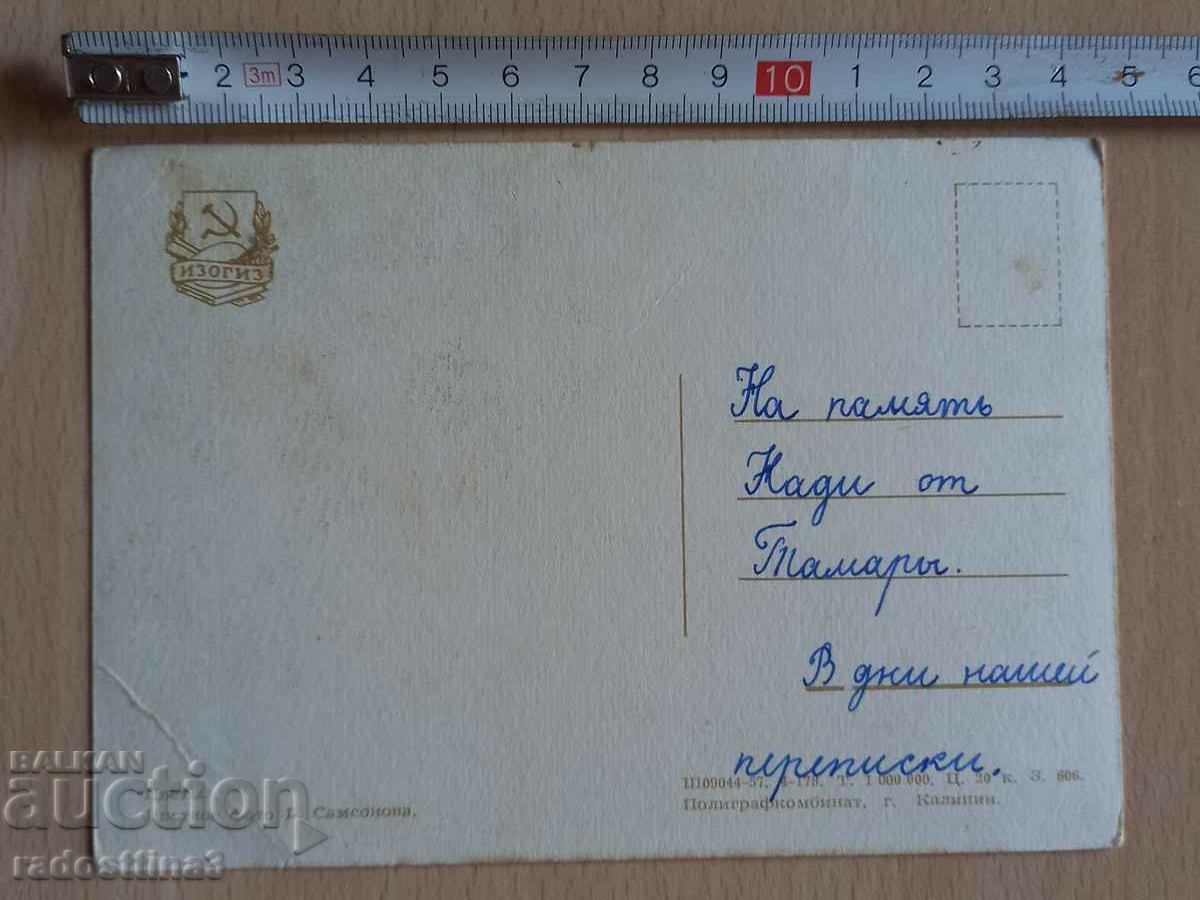 2 3m 3 4 5 6 7 8 9 10 1 2 3 4 5 6
ИЗОГИЗ
На память
Нади от
Тамары.
В дни нашей
переписки.
Ш09044-57. Т. 1 000 000. Ц. 20 к. З. 606.
Полиграфкомбинат, г. Калинин.
фото Самсонова.
BALKAN
auction
radosttina3